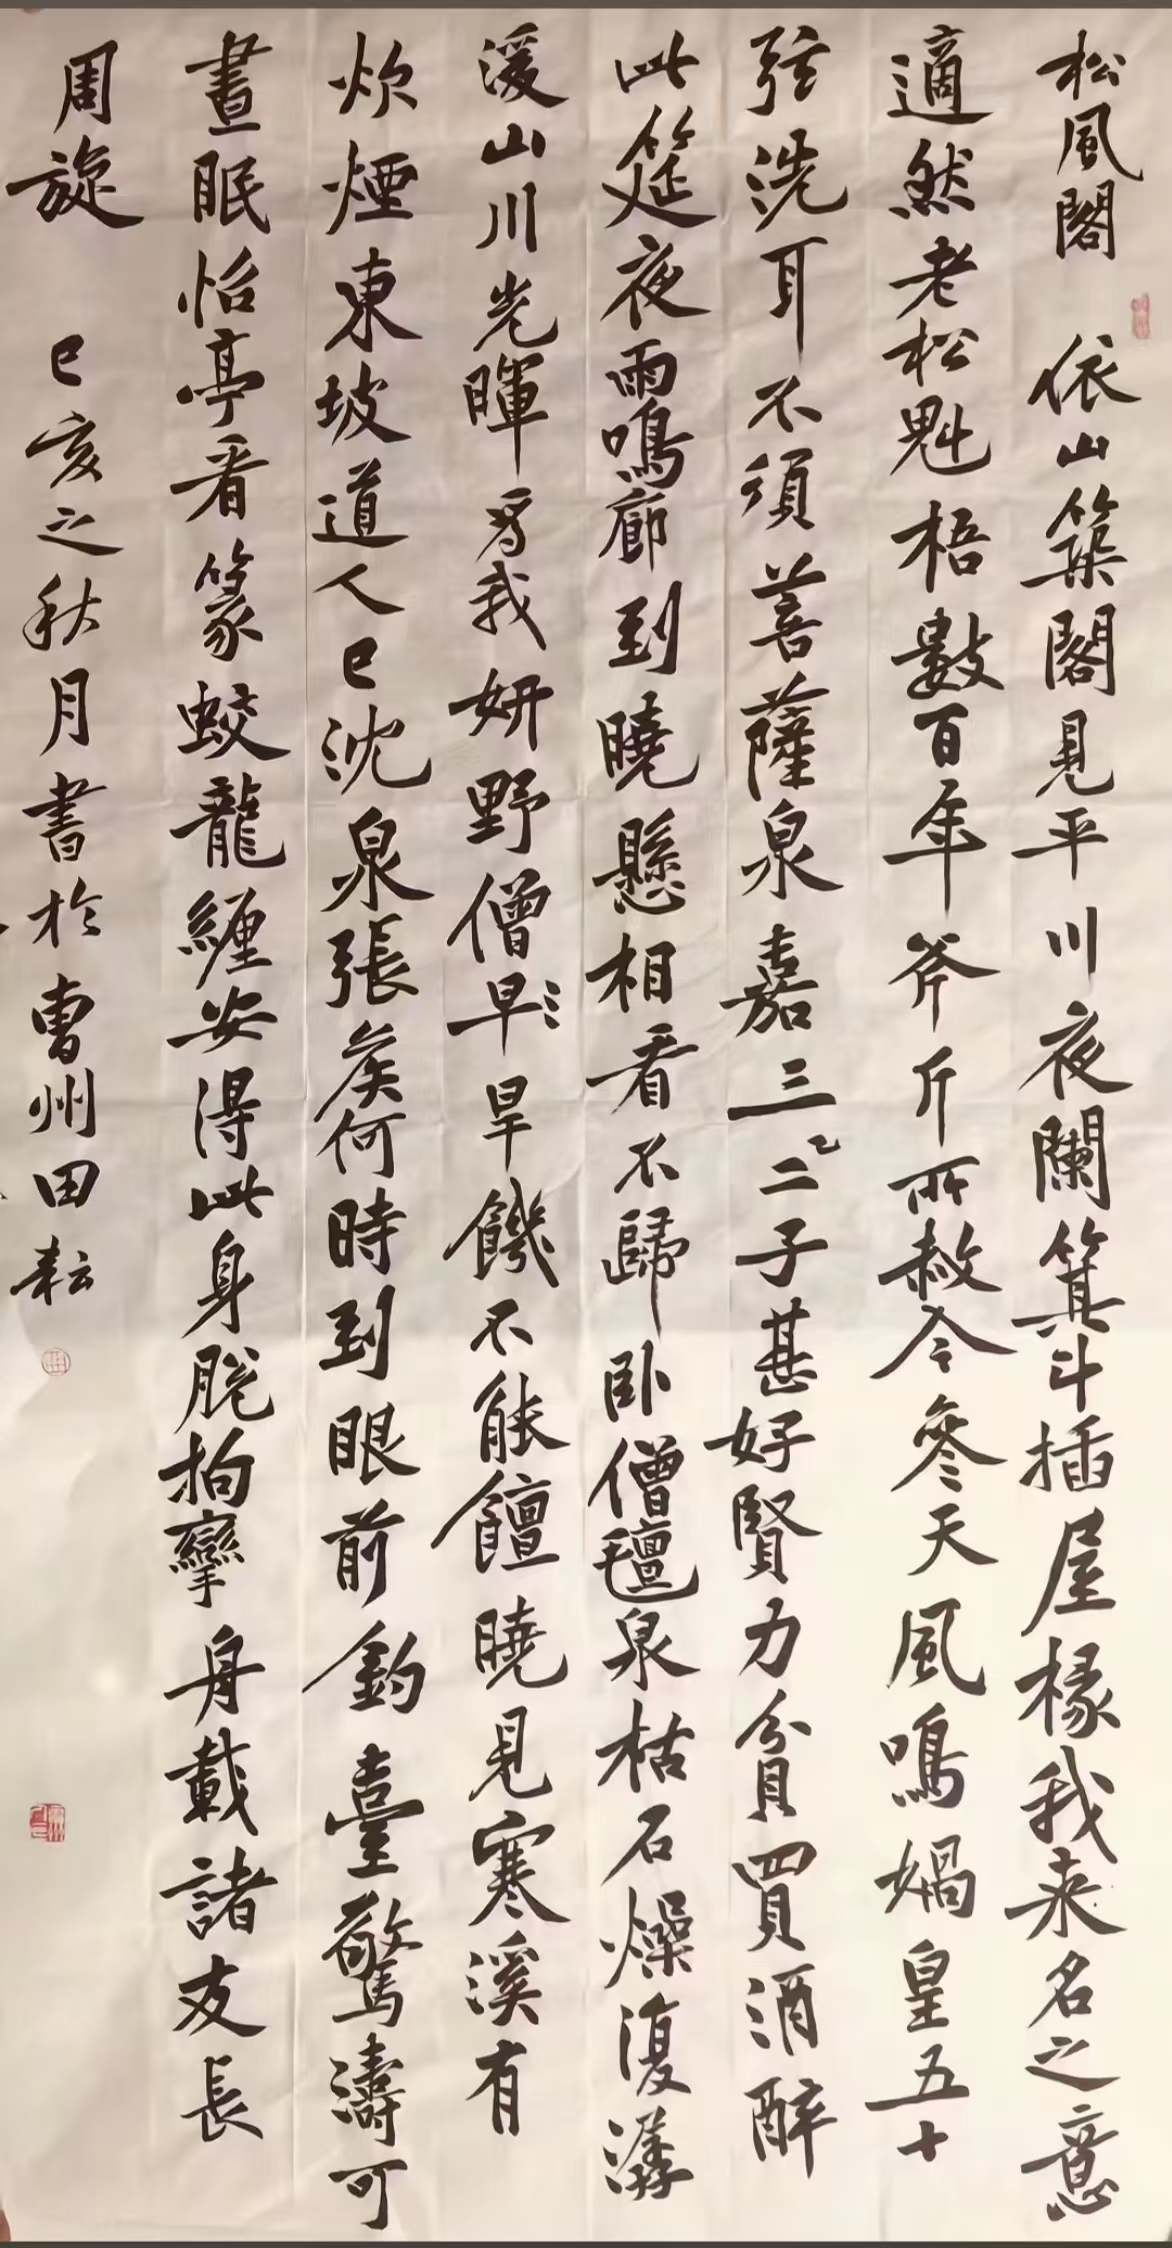 松風閣 依山築閣見平川夜闌箕斗插屋椽我来名之意
適然老松魁梧數百年斧斤所赦今參天風鳴媧皇五十
弦洗耳不須菩薩泉嘉三二子甚好賢力貧買酒醉
此筵夜雨鳴廊到曉懸相看不歸卧僧氊泉枯石燥復潺
湲山川光暉爲我妍野僧早旱饑不能饘曉見寒溪有
炊煙東坡道人已沈泉張矦何時到眼前釣臺驚濤可
晝眠怡亭看篆蛟龍纏安得此身脫拘攣舟載諸友長
周旋 己亥之秋月書於曹州田耘